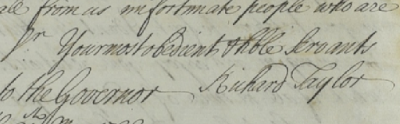 from us unfortunate people who are
Sr Your most obedient & hble Servants
to the Governor Richard Taylor